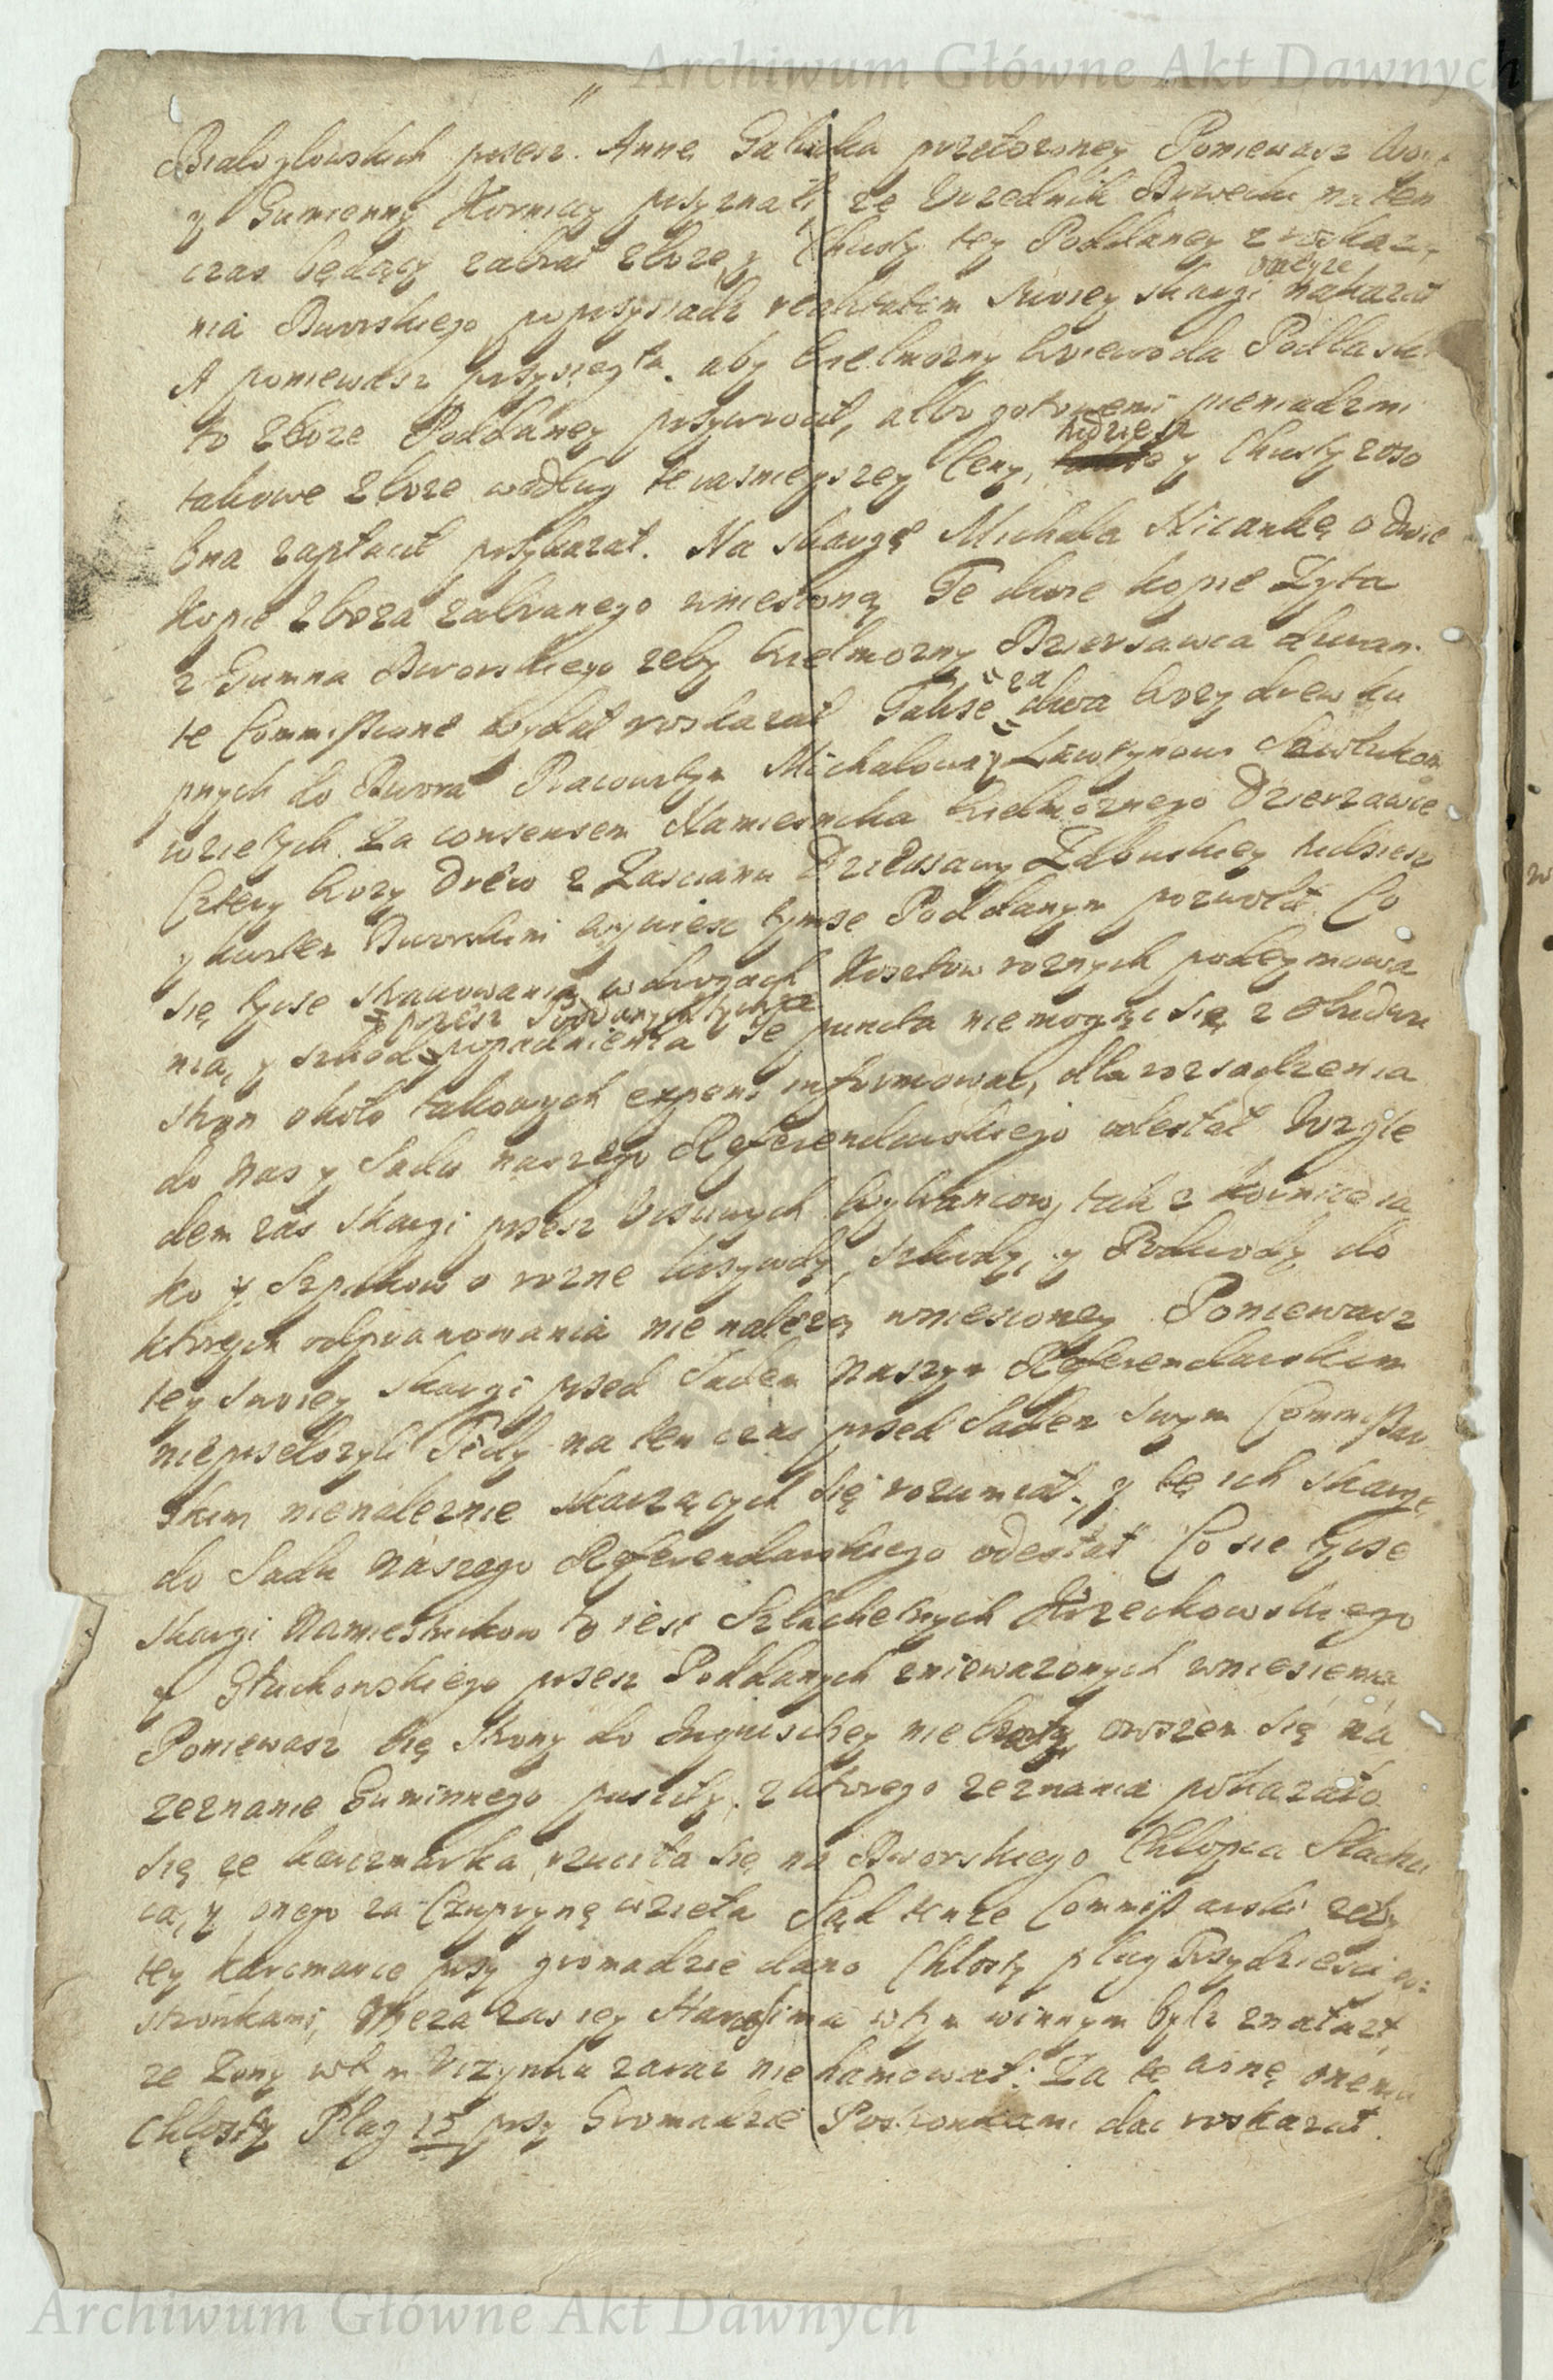 Archiwum Główne Akt Dawnych
przesz Annę Galicka przełozoney Poniewasz
y Gumienny Kornicky przyznali ze Urzednik Dworski na ten
czas będący zabrał zboze y Chusty tey Poddaney z roskaza
nia Dworskiego poprzysiadz realitatem swoiey skargi oneyze nakazał
A poniewasz przysięgła. aby Wielmozny Woiewoda Podlaski
to zboze Poddaney przywrocił, albo gotowemi pieniadzmi
takowe zboze według terasnieyszey Ceny, tudziesz y Chusty zoso
bna zapłacił przykazał. Na skargę Michała Nicankę o dwie
Kopie zboza zabranego wniesioną Te dwie kopie Zyta
z Gumna Dworskiego zeby Wielmozny Dzierzawca duran
te Commissione wydał roskazał Takze za dwa Wozy drew ku
pnych do Dworu Michałowi y Ławrynowi
wzietych za consensem Namiesnika Wielmoznego Dzierzawce
Cztery Wozy Drew z Zascianu Dzierzawy tudziesz
Dworskim wywiesc tymze Poddanym pozwolił Co
się tycze w drogach Kosztow roznych podeymowa
nia, y szkod przesz Poddanych tychze popadnienia Te puncta niemogąc się z obudwu
stron około takowych expens informowac, dla rozsadzenia
do Nas y Sadu naszego Referendarskiego odesłał Wzglę
dem zas skargi przesz Wybrancow, tak z Kornice ia
ko y Szpakow o rozne krzywdy, szkody, y Podwody do
ktorych odprawowania nie nalezą wniesioney Poniewasz
tey swoiey skargi przed Sadem Naszym Referendarskim
nieprzełozyli Tedy na ten czas przed Sadem swym Commissar
skim nienaleznie skarzących się rozumiał, y tę ich skargę
do Sadu Naszego Referendarskiego odesłał Co sie tycze
skargi Namiesnikow to iest Szlachetnych Krzeckowskiego
y Głuchowskiego przesz Poddanych zniewazonych wniesienia
Poniewasz się strony do Inquisicyey nie brały owszem się na
zeznanie Guminnego pusciły, z ktorego zeznania pokazało
się ze karczmarka rzuciła się na Dworskiego Chłopca Stacha
ca, y onego za Czuprynę wzieła Sąd tenze Commissarski zeby
tey karcmarce przy gromadzie dano Chłosty plag Trzydziesci po
stronkami, Męza zas iey w tym winnym bydz znalazł,
ze Zony w tym Uczynku zaraz nie hamował. Za tę winę onemu
Chłosty Plag 15 przy Gromadzie Postronkami dac roskazał.
Archiwum Główne Akt Dawnych